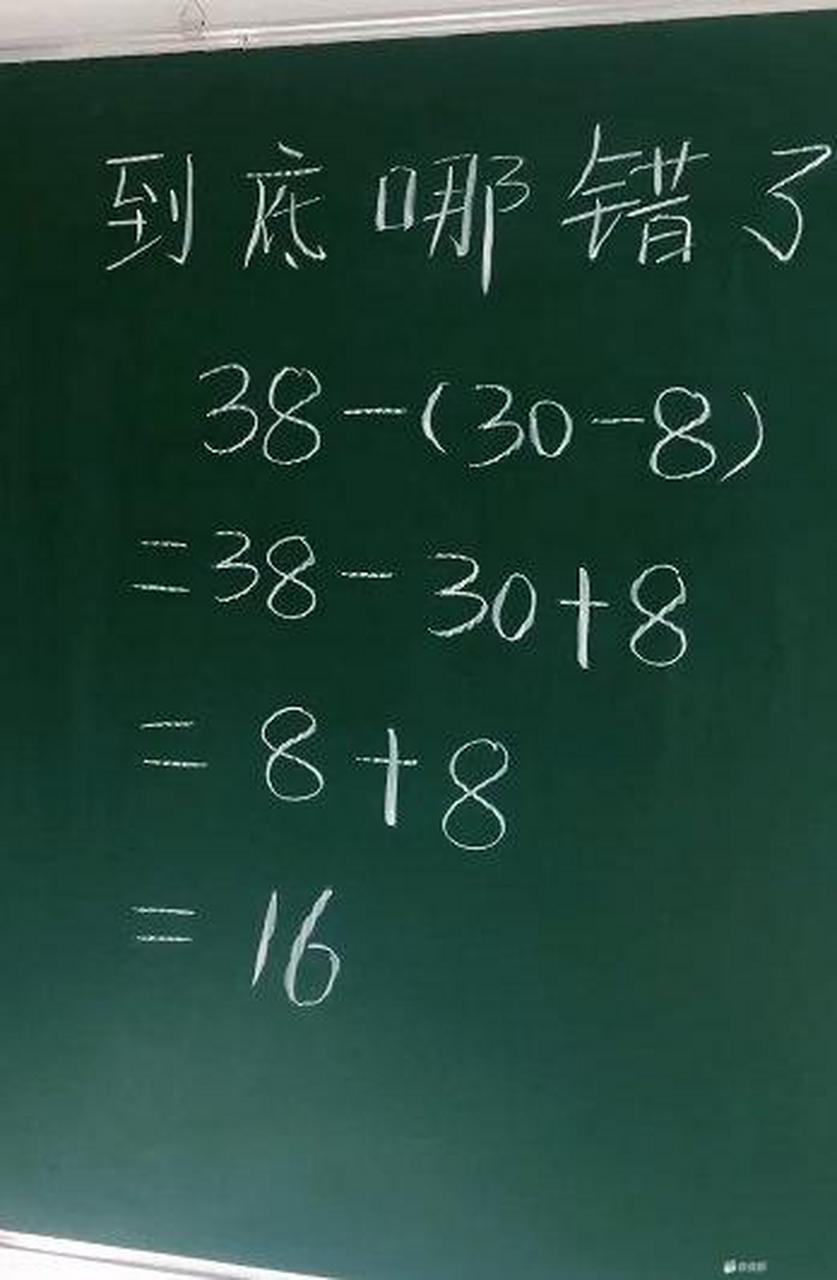 到底哪错了
38-(30-8)
=38-30+8
=8+8
=16